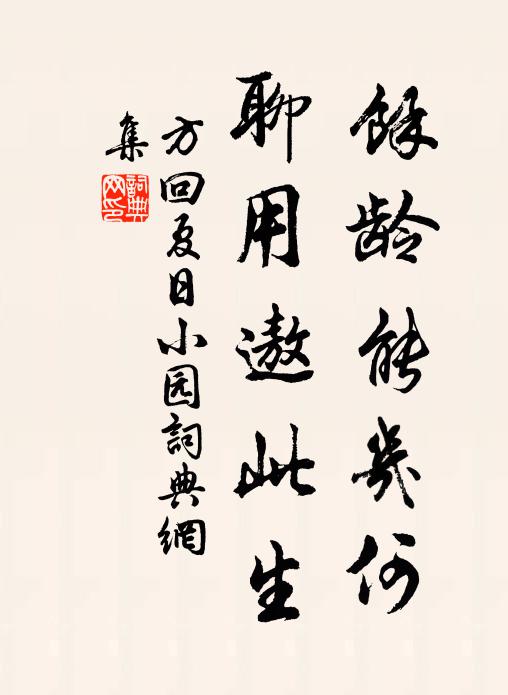 餘龄能幾何
聊用遨此生
方回夏日小园詞典網
集
詞典網印